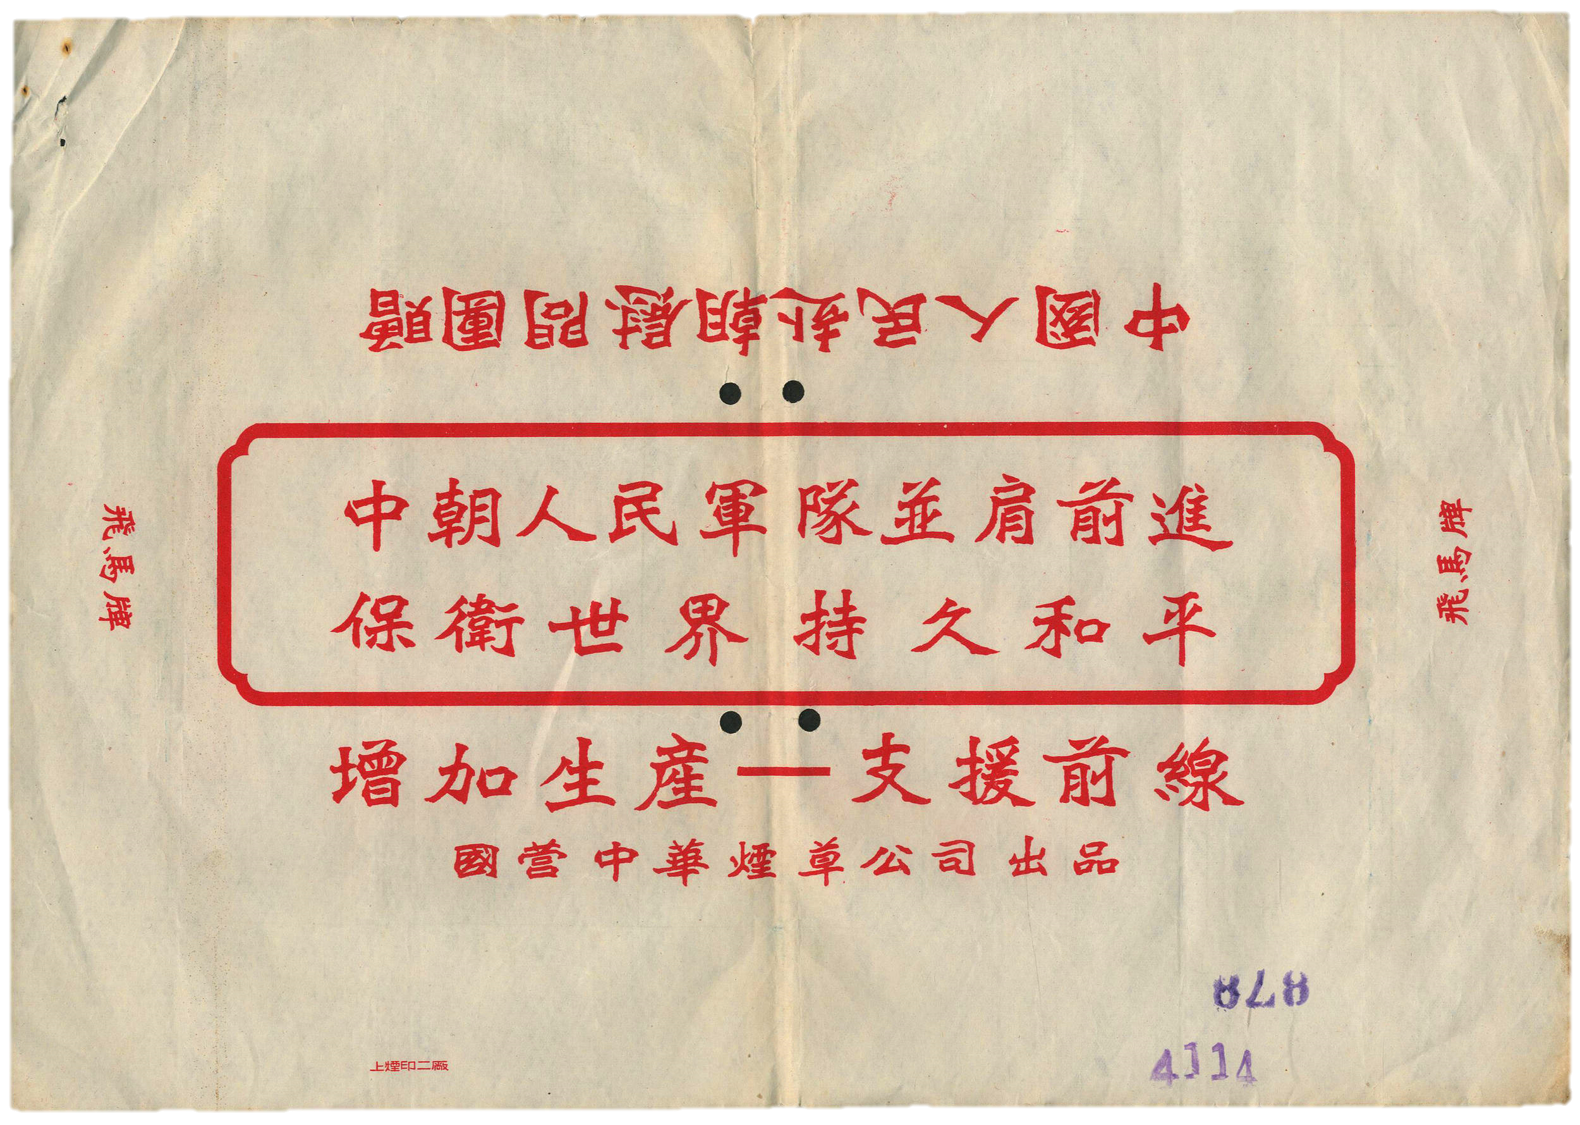 中國人民赴朝慰問團贈
中朝人民軍隊並肩前進
保衛世界持久和平
飛馬牌
飛馬牌
增加生産—支援前線
國营中華煙草公司出品
878
4114
上煙印二廠